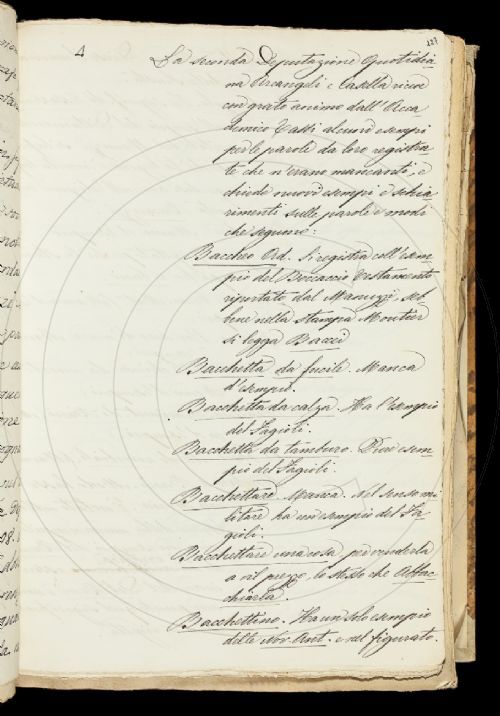 127
4
La seconda Deputazione Quotidia-
na Arcangeli e Casella riceve
con grato animo dall'Acca-
demico Tassi alcuni esempi
per le parole da loro registra-
te che n'erano mancanti, e
chiede nuovi esempi e schia-
rimenti sulle parole e modi
che seguono:
Baccheo Add. Si registra coll'esem-
pio del Boccaccio Testamento
riportato dal Manuzzi, seb-
bene nella stampa Moutier
si legga Bacci
Bacchetta da fucile. Manca
d'esempio.
Bacchetta da calza. Ha l'esempio
del Fagioli.
Bacchetta da tamburo. Pure esem-
pio del Fagioli.
Bacchettare. Manca. Nel senso mi-
litare ha un esempio del Fa-
gioli.
Bacchettare una cosa, per venderla
a vil prezzo, lo stesso che Abbac-
chiarla.
Bacchettino. Ha un solo esempio
delle Nov. Ant. e nel figurato.